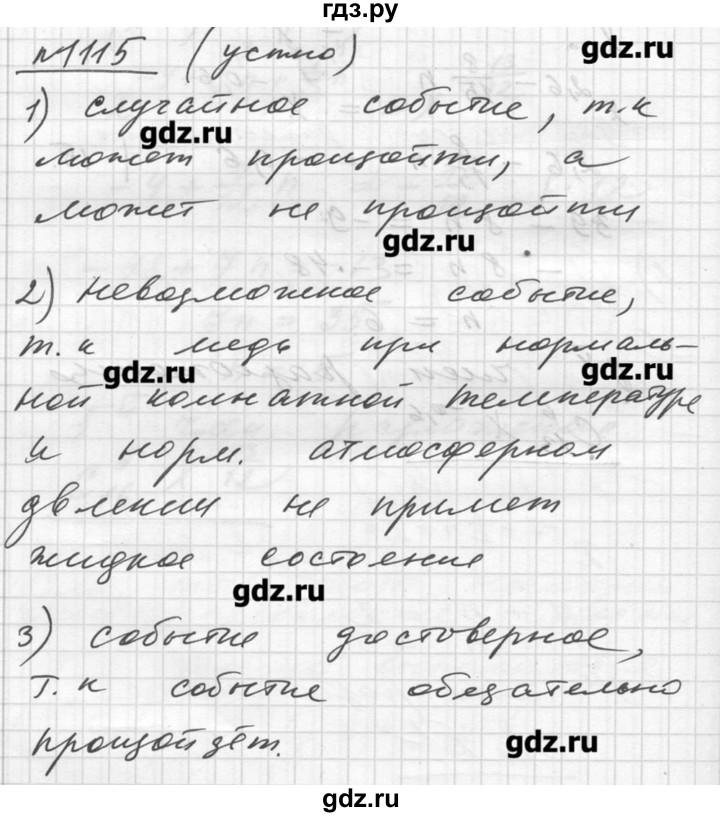 гдз.ру
№1115 (устно)
gdz.ru
1) случайное событие, т.к
gdz.ru
может произойти, а
может не произойти
gdz.ru
2) невозможное событие,
т.к медь при нормаль-
gdz.ru
gdz.ru
ной комнатной температуре
и норм. атмосферном
двлении не примет
жидкое состоение
gdz.ru
3) событие достоверное,
т.к событие обезательно
произойдёт.
gdz.ru
gdz.ru